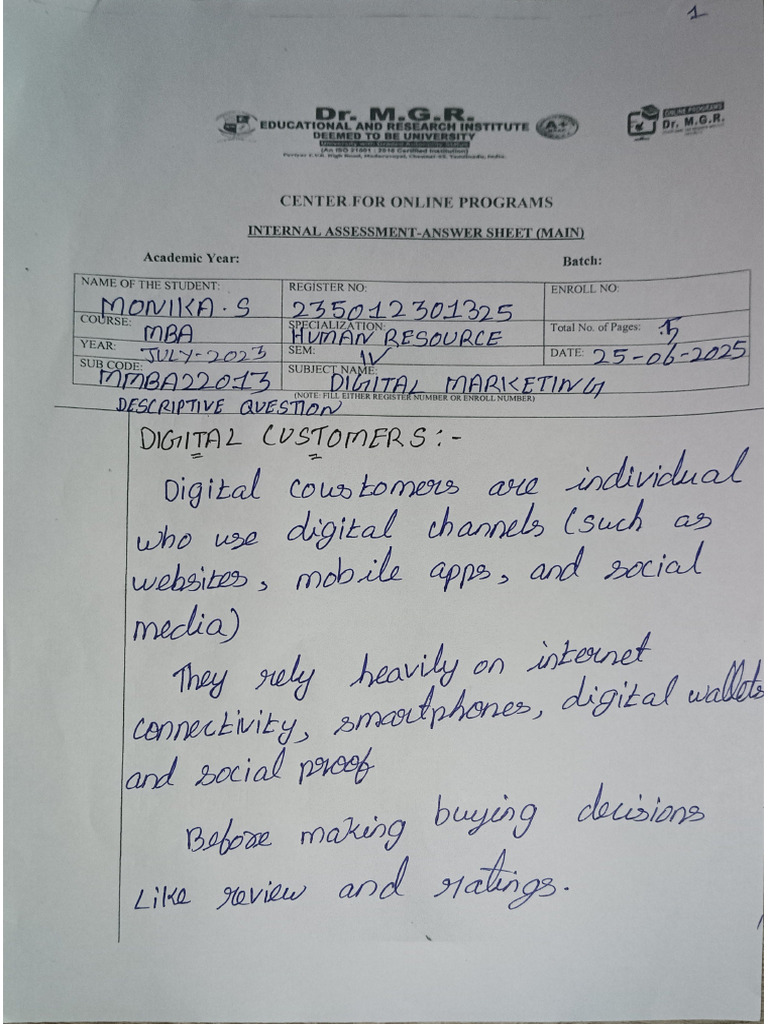 1
Dr. M.G.R.
EDUCATIONAL AND RESEARCH INSTITUTE
DEEMED TO BE UNIVERSITY
University with Graded Autonomy Status
(An ISO 21001 : 2018 Certified Institution)
Periyar E.V.R. High Road, Maduravoyal, Chennai-95. Tamilnadu, India.
A+
ONLINE PROGRAMS
Dr. M.G.R.
CENTER FOR ONLINE PROGRAMS
INTERNAL ASSESSMENT-ANSWER SHEET (MAIN)
Academic Year: Batch:
NAME OF THE STUDENT: MONIKA.S
REGISTER NO: 235012301325
ENROLL NO:
COURSE: MBA
SPECIALIZATION: HUMAN RESOURCE
Total No. of Pages: 5
YEAR: JULY-2023
SEM: IV
DATE: 25-06-2025
SUB CODE: MMBA22013
SUBJECT NAME: DIGITAL MARKETING
(NOTE: FILL EITHER REGISTER NUMBER OR ENROLL NUMBER)
DESCRIPTIVE QUESTION
DIGITAL CUSTOMERS:-
Digital coustomers are individual
who use digital channels (such as
websites, mobile apps, and social
media)
They rely heavily on internet
connectivity, smartphones, digital wallets
and social proof
Before making buying decisions
Like review and ratings.